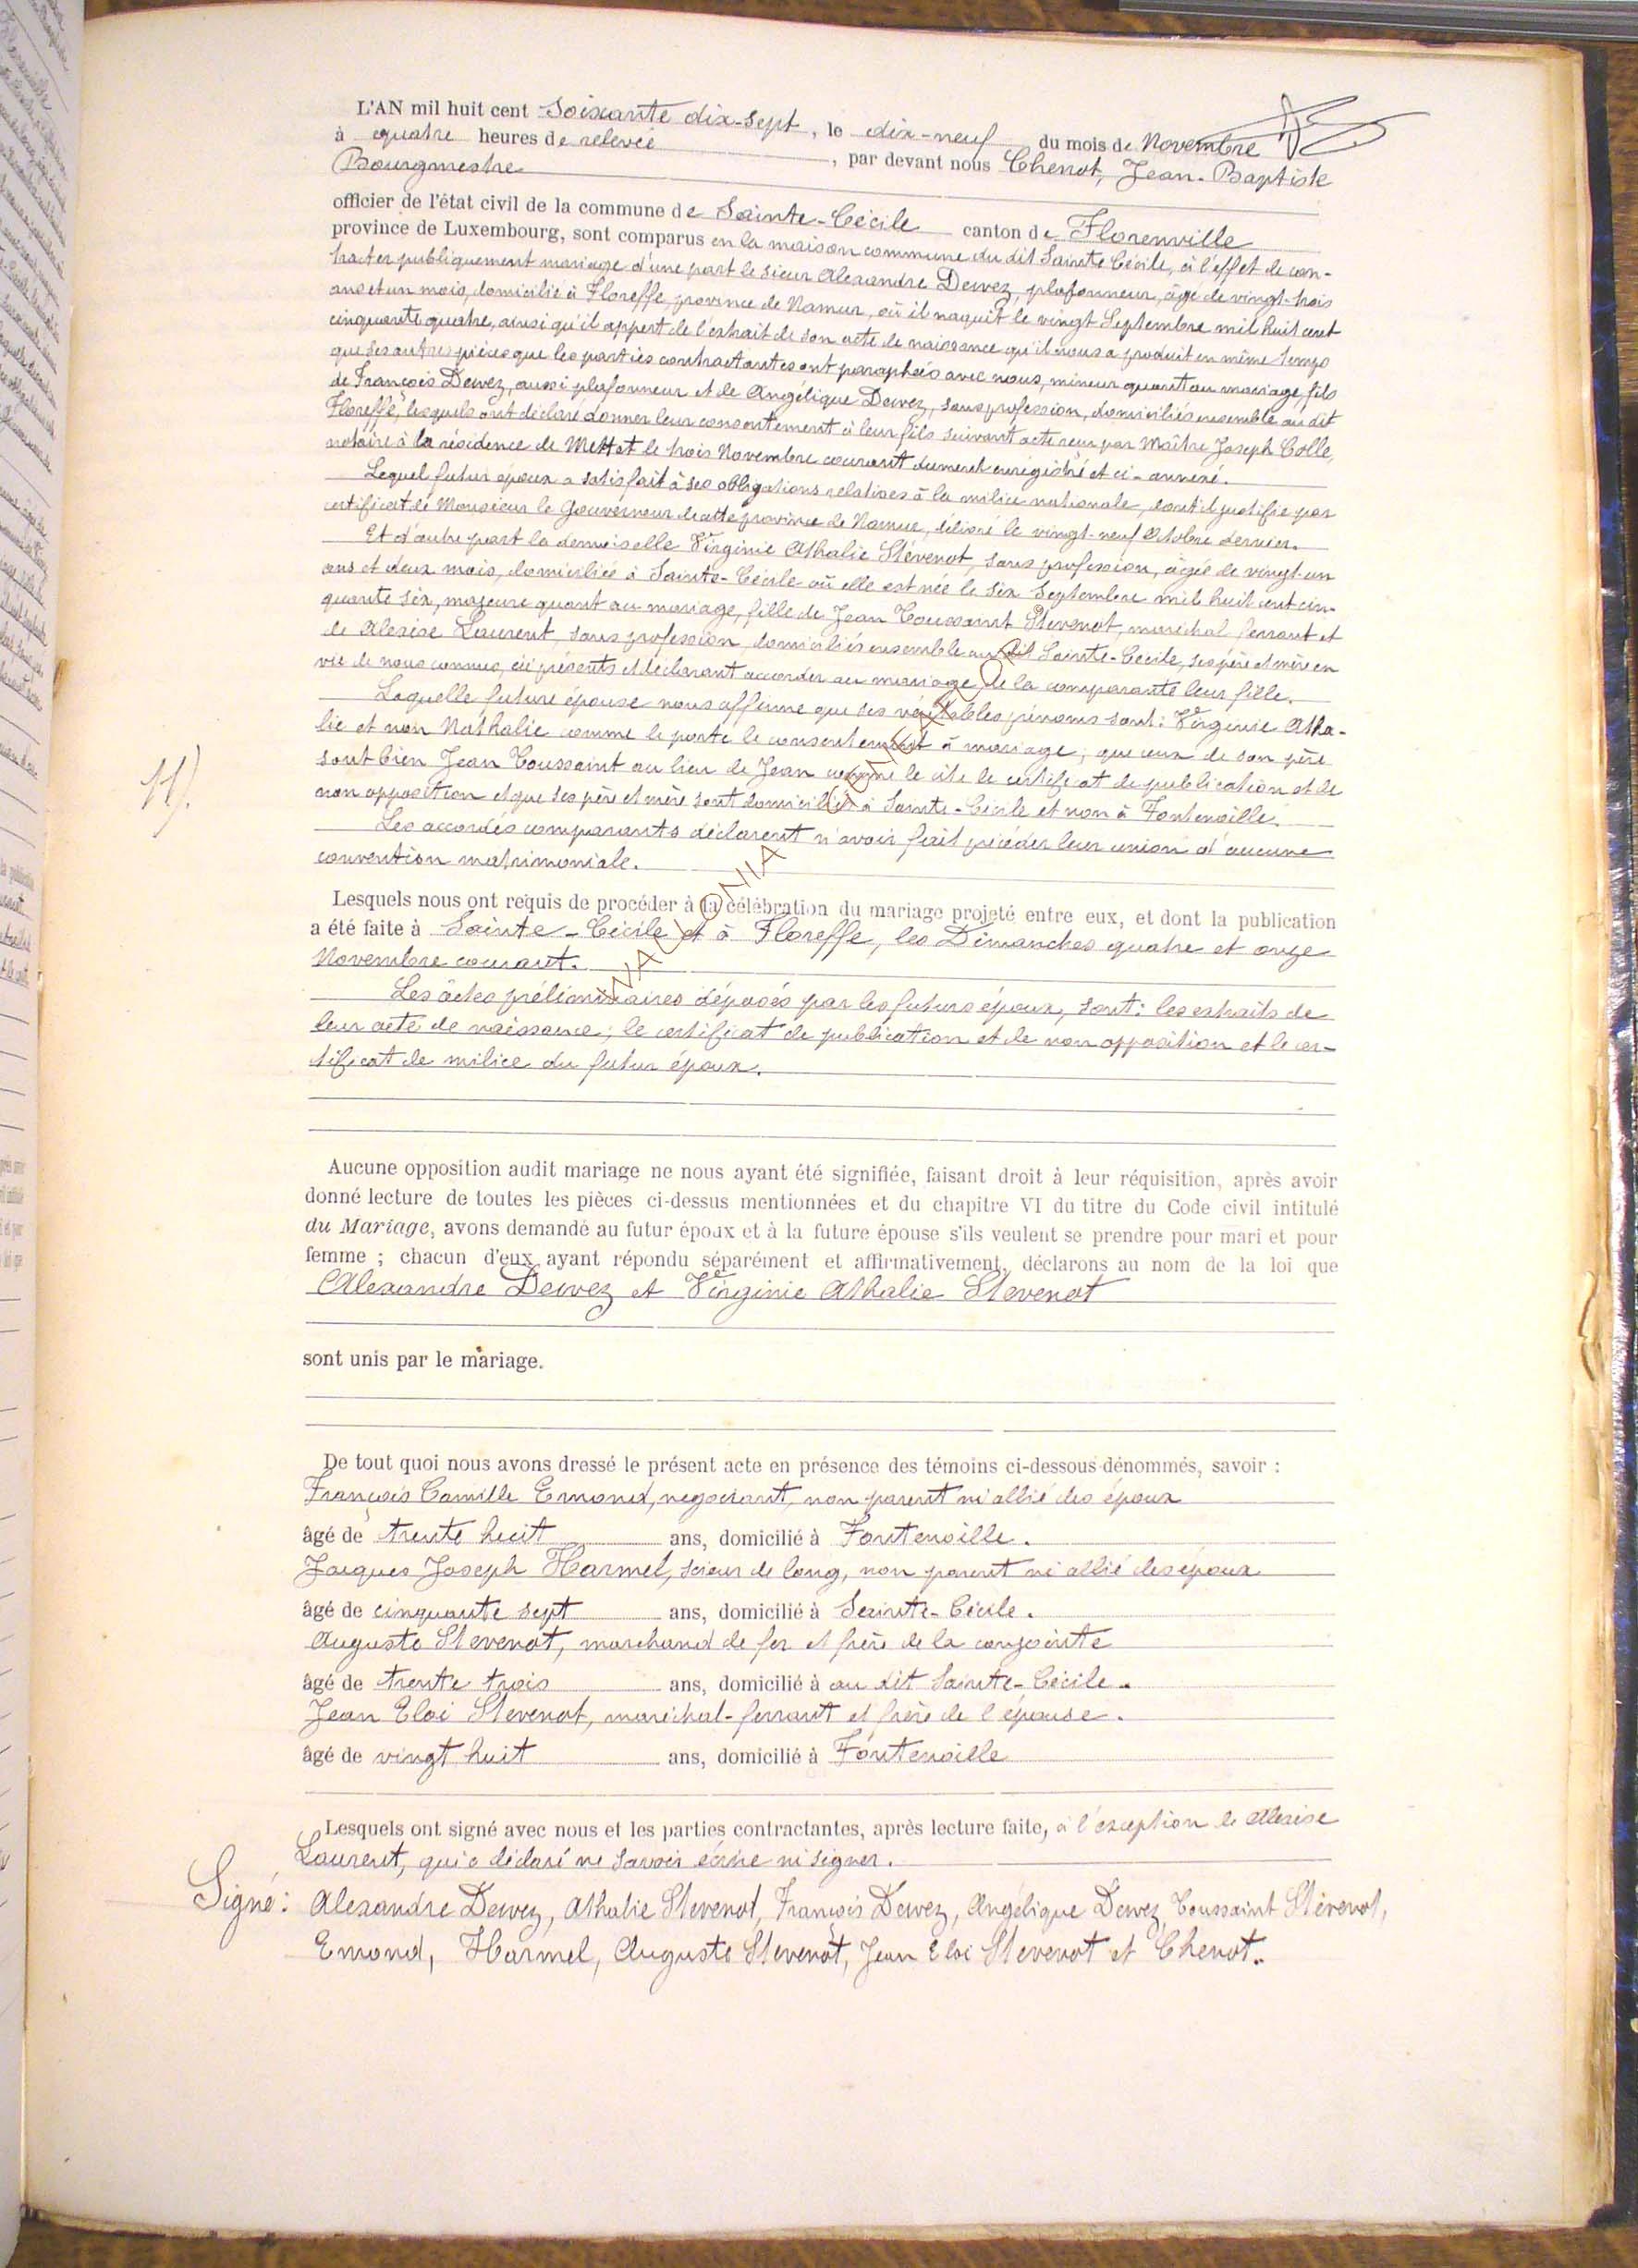 L'AN mil huit cent Soixante dix-sept, le dix-neuf du mois de Novembre
à quatre heures de relevée, par devant nous Chenot, Jean-Baptiste
Bourgmestre
officier de l'état civil de la commune de Sainte-Cécile canton de Florenville
province de Luxembourg, sont comparus en la maison commune du dit Sainte Cécile, à l'effet de con-
tracter publiquement mariage d'une part le sieur Alexandre Dewez, plafonneur, âgé de vingt-trois
ans et un mois, domicilié à Floreffe, province de Namur, où il naquit le vingt Septembre mil huit cent
cinquante quatre, ainsi qu'il appert de l'extrait de son acte de naissance qu'il nous a produit en même temps
que des autres pièces que les parties contractantes ont paraphées avec nous, mineur quant au mariage, fils
de François Dewez, aussi plafonneur et de Angélique Dewez, sans profession, domiciliés ensemble au dit
Floreffe, lesquels ont déclaré donner leur consentement à leur fils suivant acte reçu par Maître Joseph Colle,
notaire à la résidence de Mettet le trois Novembre courant dument enregistré et ci-annexé.
Lequel futur époux a satisfait à ses obligations relatives à la milice nationale, dont il justifie par
certificat de Monsieur le Gouverneur de cette province de Namur, délivré le vingt-neuf Octobre dernier.
Et d'autre part la demoiselle Virginie Athalie Stévenot, sans profession, âgée de vingt-un
ans et deux mois, domiciliée à Sainte-Cécile où elle est née le six Septembre mil huit cent cin-
quante six, majeure quant au mariage, fille de Jean Toussaint Stevenot, maréchal ferrant et
de Alexise Laurent, sans profession, domiciliés ensemble au dit Sainte-Cécile, ses père et mère en
vie de nous connus, ici présents et déclarant accorder au mariage de la comparante leur fille.
Laquelle future épouse nous affirme que ses véritables prénoms sont: Virginie Atha-
lie et non Nathalie comme le porte le consentement à mariage, que ceux de son père
sont bien Jean Toussaint au lieu de Jean comme le cite le certificat de publication et de
non opposition et que ses père et mère sont domiciliés à Sainte-Cécile et non à Fontenoille.
11).
Les accordés comparants déclarent n'avoir fait précéder leur union d'aucune
convention matrimoniale.
Lesquels nous ont requis de procéder à la célébration du mariage projeté entre eux, et dont la publication
a été faite à Sainte-Cécile et à Floreffe, les Dimanches quatre et onze
Novembre courant.
Les actes préliminaires déposés par les futurs époux, sont: les extraits de
leur acte de naissance; le certificat de publication et de non opposition et le cer-
tificat de milice du futur époux.
Aucune opposition audit mariage ne nous ayant été signifiée, faisant droit à leur réquisition, après avoir
donné lecture de toutes les pièces ci-dessus mentionnées et du chapitre VI du titre du Code civil intitulé
du Mariage, avons demandé au futur époux et à la future épouse s'ils veulent se prendre pour mari et pour
femme ; chacun d'eux ayant répondu séparément et affirmativement, déclarons au nom de la loi que
Alexandre Dewez et Virginie Athalie Stevenot
sont unis par le mariage.
De tout quoi nous avons dressé le présent acte en présence des témoins ci-dessous dénommés, savoir :
François Camille Emond, négociant, non parent ni allié des époux
âgé de trente huit ans, domicilié à Fontenoille.
Jacques Joseph Harmel, scieur de long, non parent ni allié des époux
âgé de cinquante sept ans, domicilié à Sainte-Cécile.
Auguste Stevenot, marchand de fer et frère de la conjointe
âgé de trente trois ans, domicilié à au dit Sainte-Cécile.
Jean Eloi Stevenot, maréchal-ferrant et frère de l'épouse.
âgé de vingt huit ans, domicilié à Fontenoille
Lesquels ont signé avec nous et les parties contractantes, après lecture faite, à l'exception de Alexise
Laurent, qui a déclaré ne savoir écrire ni signer.
Signé: Alexandre Dewez, Athalie Stevenot, François Dewez, Angélique Dewez, Toussaint Stévenot,
Emond, Harmel, Auguste Stevenot, Jean Eloi Stevenot et Chenot.